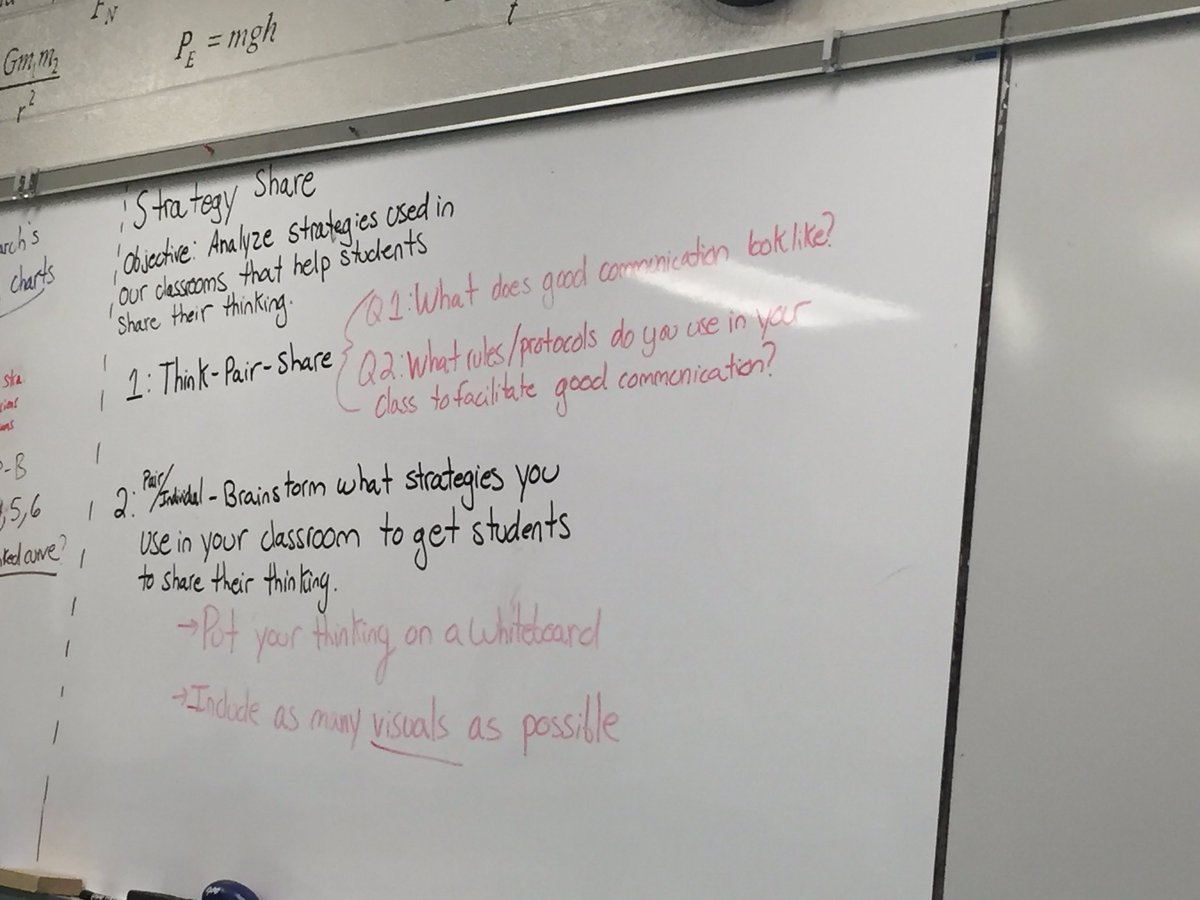 F_N
t
Gm₁m₂
r²
P_E = mgh
arch's
charts
5,6
curve?
Strategy Share
Objective: Analyze strategies used in
our classrooms that help students
share their thinking.
1: Think-Pair-Share
Q1: What does good communication look like?
Q2: What rules/protocols do you use in your
class to facilitate good communication?
2: Pair/Individual - Brainstorm what strategies you
use in your classroom to get students
to share their thinking.
→ Put your thinking on a whiteboard
→ Include as many visuals as possible